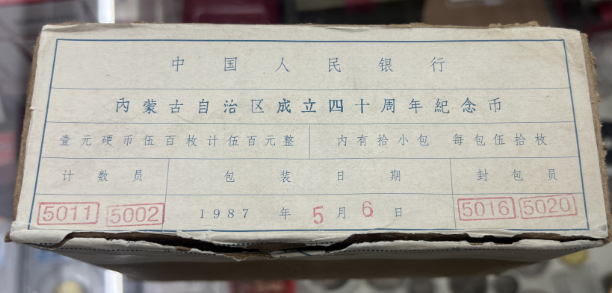 中国人民银行
内蒙古自治区成立四十周年紀念币
壹元硬币伍百枚计伍百元整 内有拾小包 每包伍拾枚
计数员 包装日期 封包员
5011 5002 1987年5月6日 5016 5020